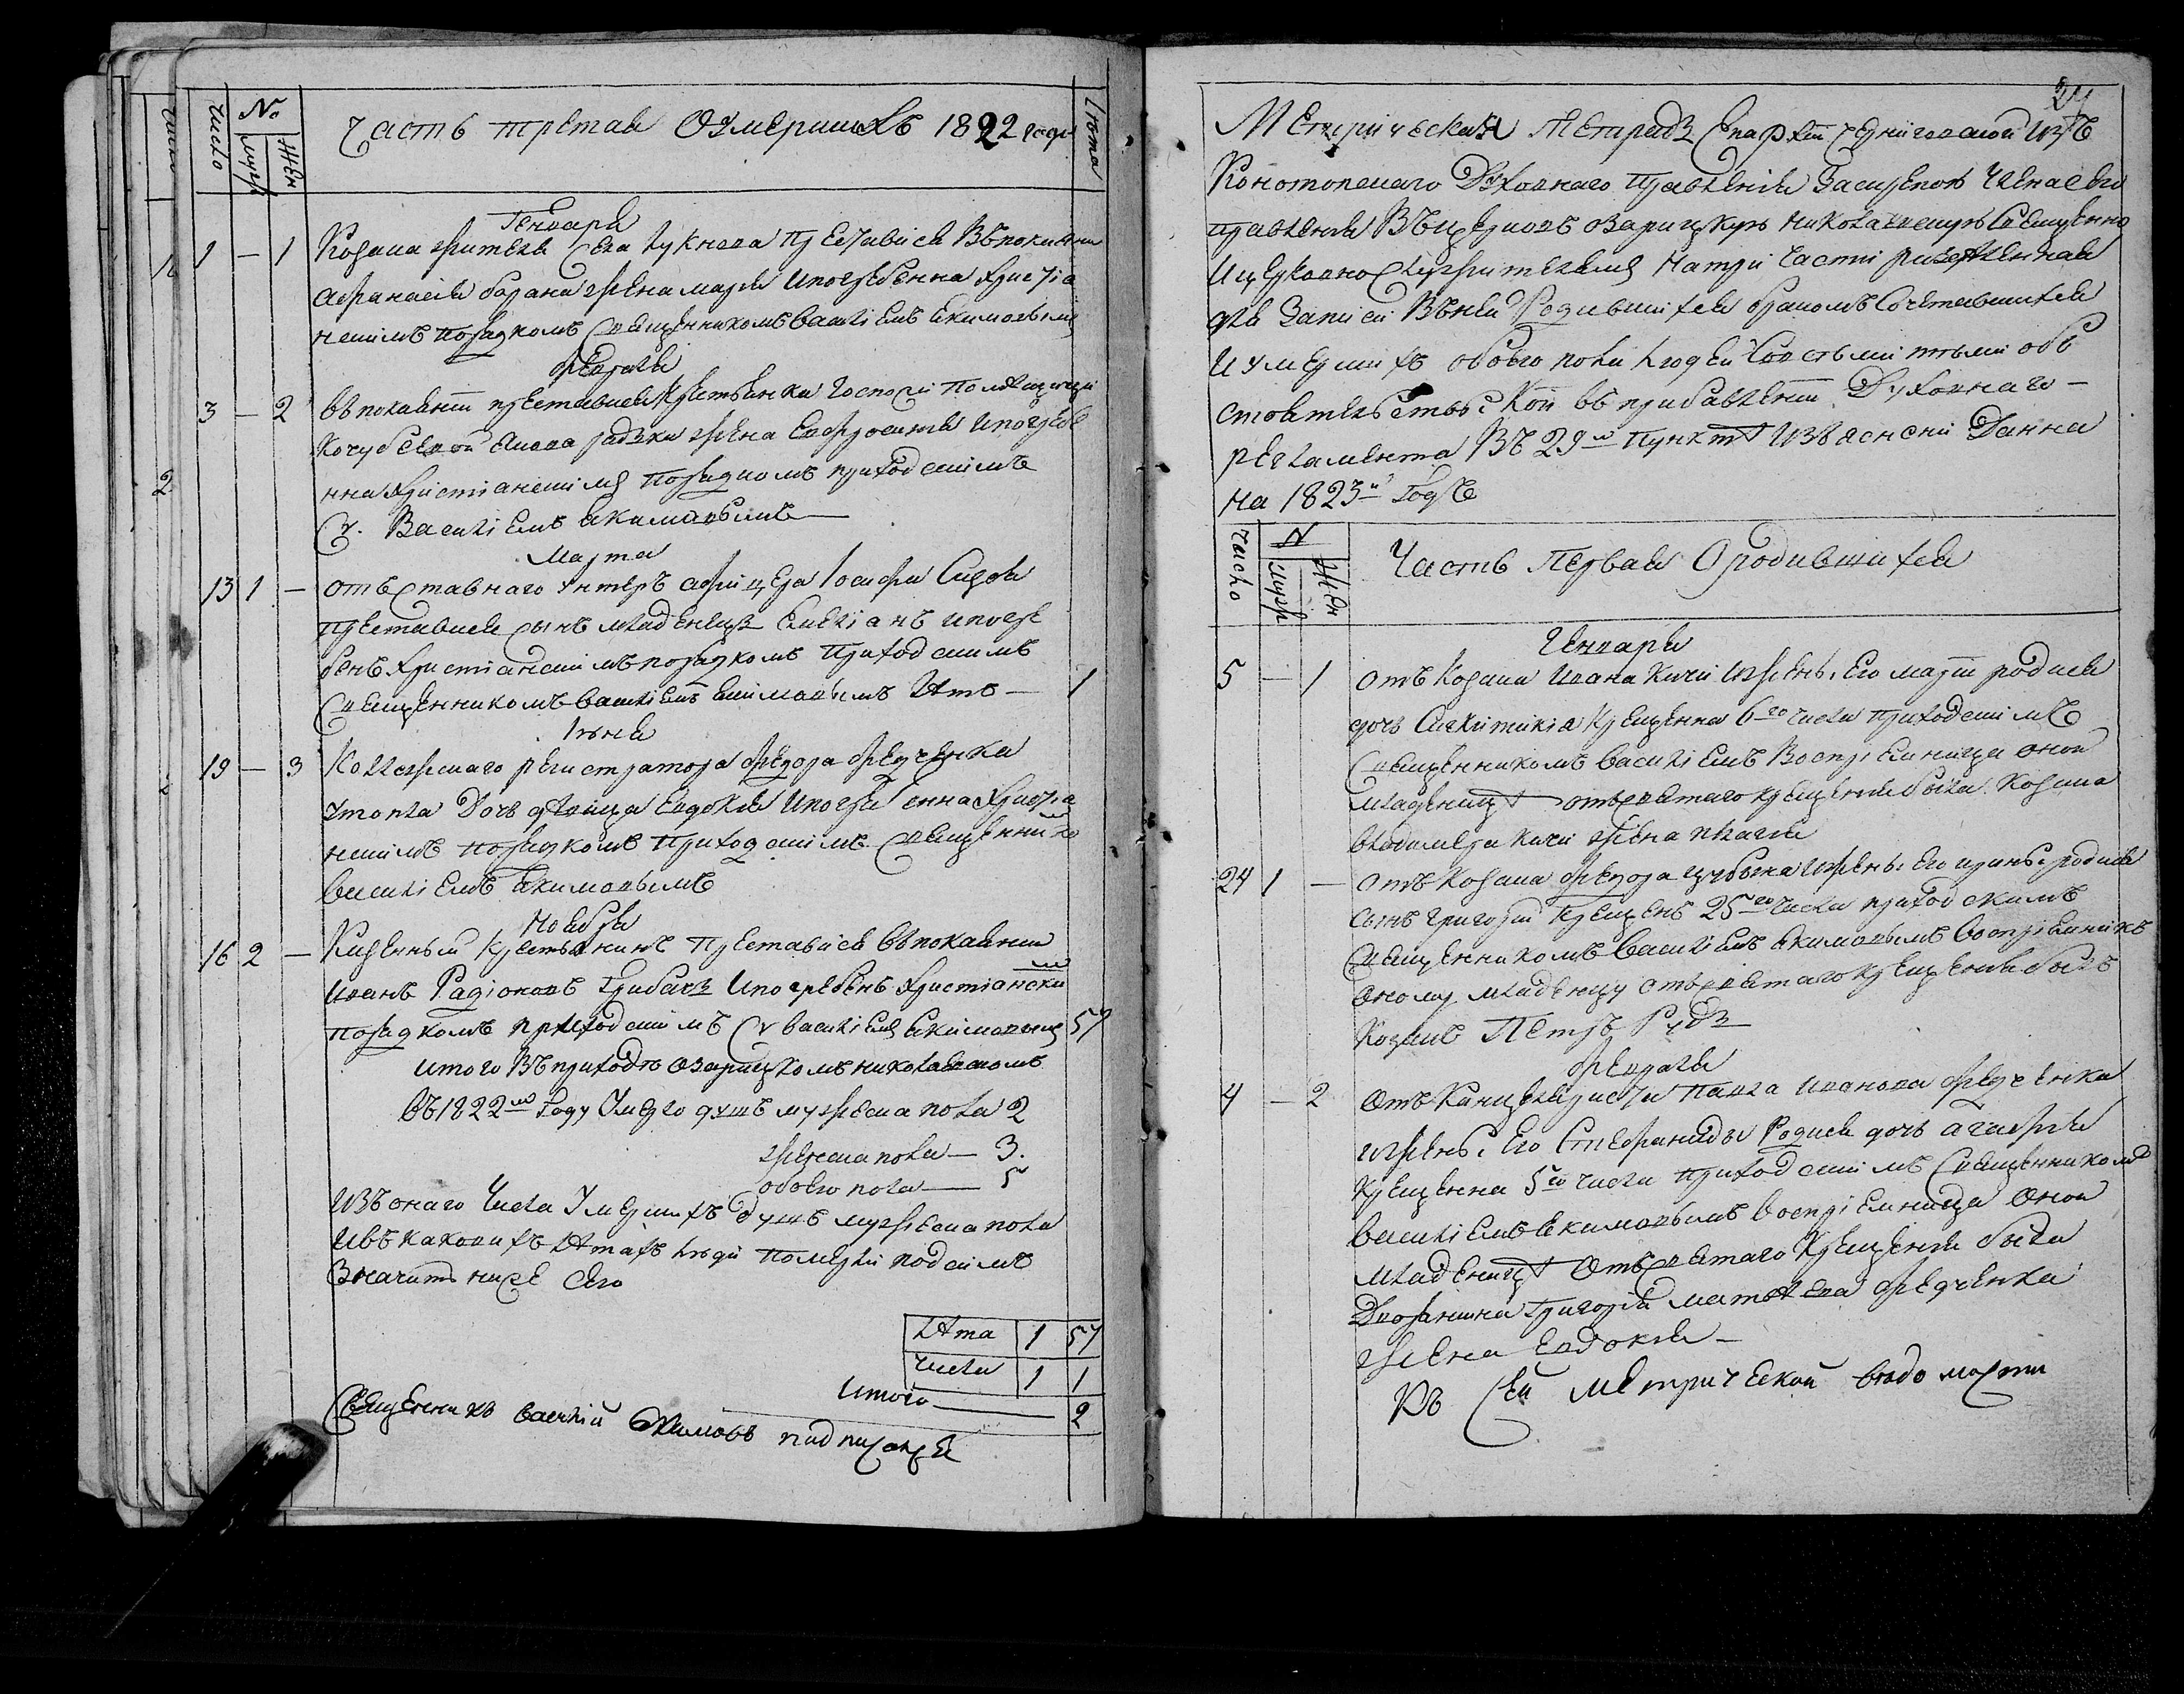 число № Муж Жен Часть третая О умершихъ 1822 года Лѣта
Генваря
1 — 1 Козака жителя села Лукнова преставися въ покаянии
Афанасія барана жена марія и погребенна христіа
нскимъ порядкомъ Священникомъ Василіемъ Акимовымъ
Февраля
3 — 2 въ покаяніи преставися крестьянки Госпожи Помѣщици
Кочубеевой жена Евфросинія и погребе
нна христіанскимъ порядкомъ приходскимъ
С. Василіемъ Акимовымъ —
Марта
13 1 — отъставнаго унтеръ афицера Іосифа Сидова
преставися сынъ младенецъ Емеліанъ и погре
бенъ христіанскимъ порядкомъ приходскимъ
Священникомъ Василіемъ Акимовымъ лѣтъ — 1
Іюня
19 — 3 Коллежскаго регистратора Федора Федченка
утопла дочь дѣвица Евдокія и погребенна христіа
нскимъ порядкомъ приходскимъ Священнико
Василіемъ Акимовымъ
Ноября
16 2 — Казенный крестьянинъ преставися въ покаянии
Иванъ Радіоновъ Грибачъ и погребенъ христіански
порядкомъ приходскимъ С Василіемъ Акимовымъ 57
итого въ приходѣ озарицкомъ николаевскомъ
въ 1822 м Году Умерло душъ мужеска пола 2
женска пола — 3.
обоего пола — 5
Изъ онаго числа умершихъ душъ мужеска пола
и въ каковихъ лѣтахъ люди померли под симъ
значитъ ниже сего
Лѣта 1 57
Числа 1 1
Итого — 2
Священникъ Василій Акимовъ подписался
24
Метрическая тетрадь Епархіи Черниговской изъ
Конотопскаго Духовнаго Правленія за скрепою члена сего
правленія въ церковь озарицкую николаевскую священно
и церковно служителямъ на три части раздѣленная
для записи въ ней родившихся бракомъ сочетавшихся
и умершихъ обоего пола людей со всѣми тѣми обс
стоятельствы кои въ прибавленіи Духовнаго —
регламента въ 29 м пунктѣ изъяснены Данна
на 1823 й годъ
число N Муж Жен Часть Первая О родившихся
Генваря
5 — 1 отъ козака Ивана Кичи и жены его маріи родися
дочь Синклитикія крещенна 6 го числа приходскимъ
священникомъ Василіемъ Воспріемница оной
младеницѣ отъ святаго крещенія была козака
владимера Кичи жена пелагія
24 1 — отъ козака Федора цубыка и жены его ирины родися
сынъ григорій крещенъ 25 го числа приходскимъ
священникомъ Василіемъ Акимовымъ Воспріемникъ
оному младенцу отъ святаго крещенія былъ
козакъ Петръ Рудъ
Февраля
4 — 2 отъ Канцеляриста Павла Иванова Федченка
и жены его Стефаниды родися дочь агафія
крещенна 5 го числа приходскимъ священникомъ
Василіемъ Екимовымъ Воспріемница оной
младеницѣ отъ святаго крещенія была
Дворянина Григорія матвѣева Федченка
жена Евдокія —
Къ сей метрической вѣдомости